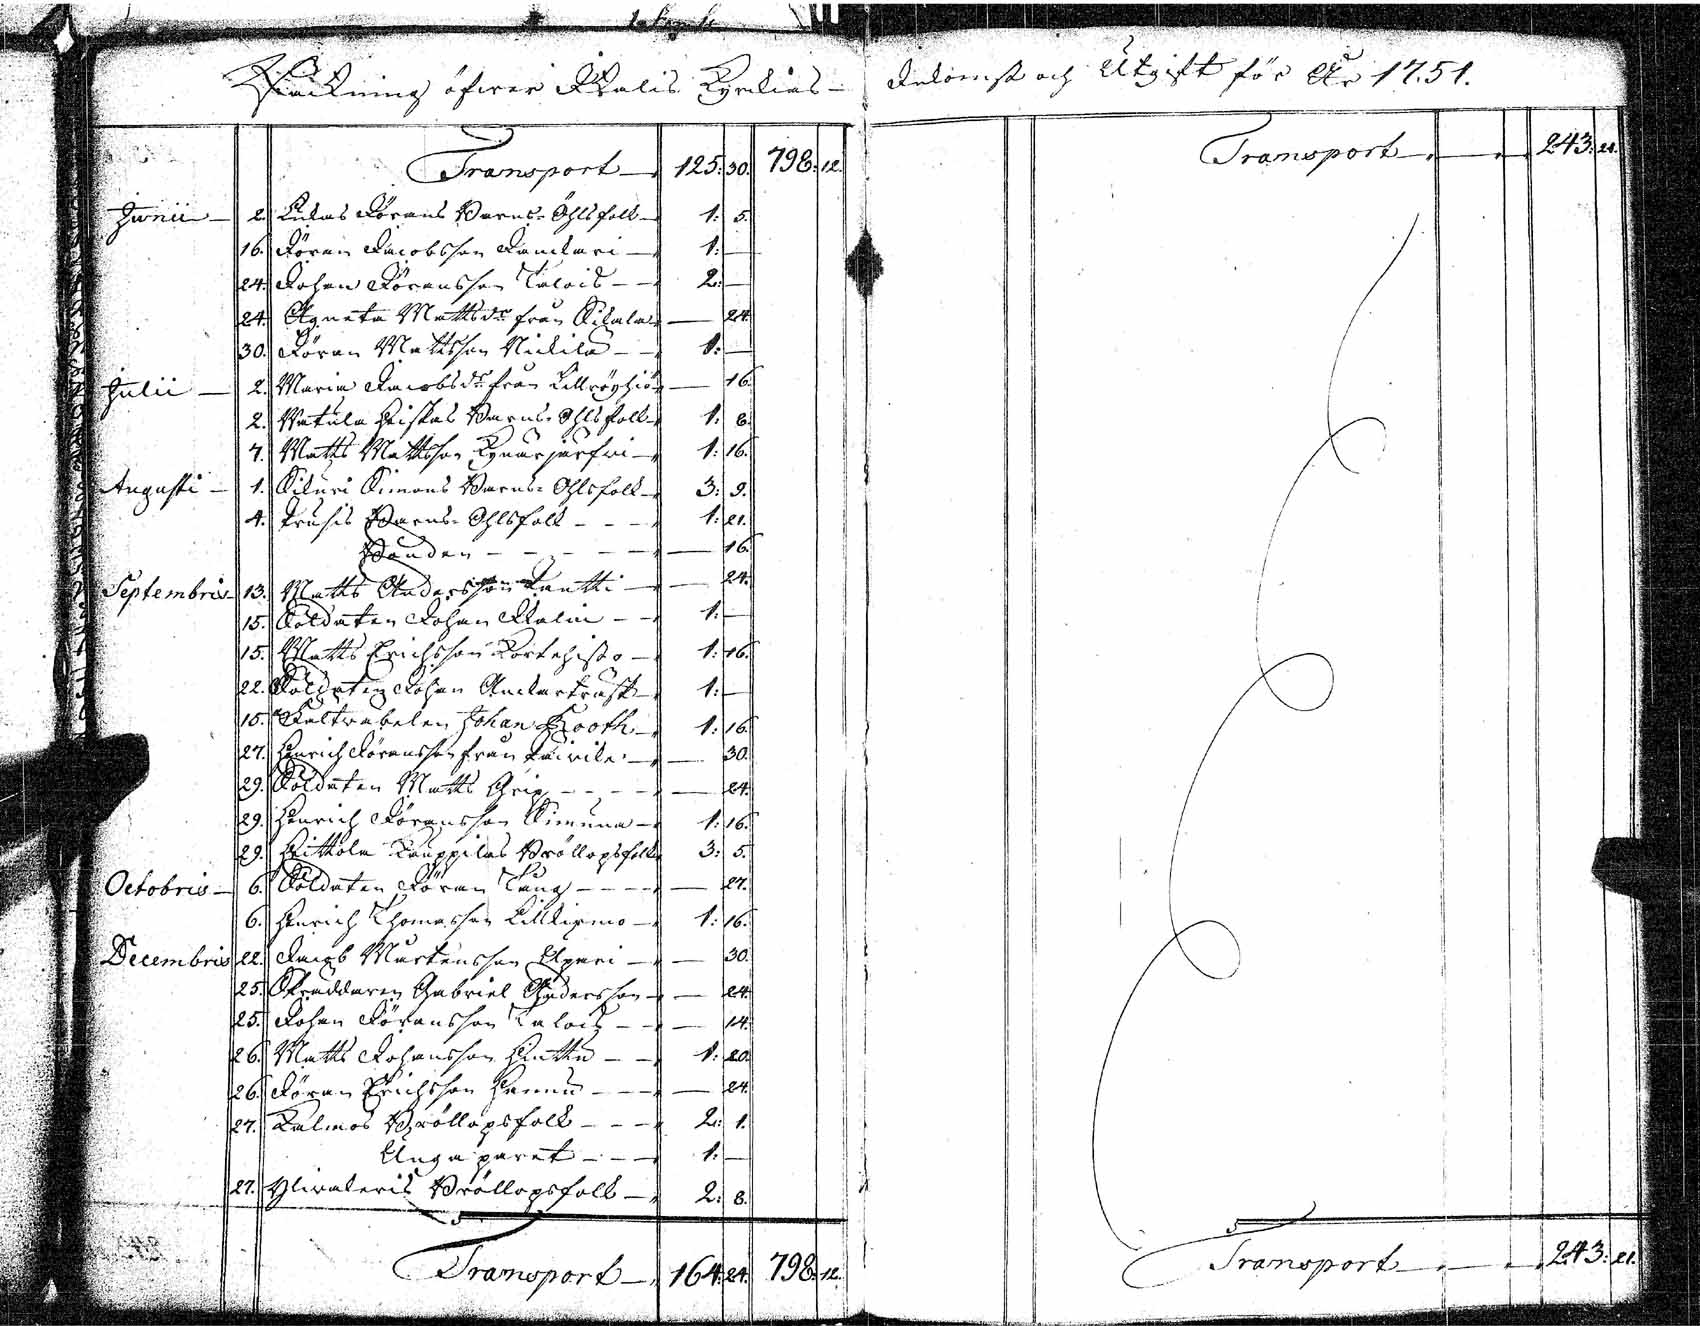 Räkning öfwer Kalis Kyrckias Inkomst och Utgift för År 1751.
Transport 125: 30. 798: 12.
Junii 2. Lukas Jörans Barns-Öhlsfolk 1: 5.
16. Jöran Jacobsson 1: —
24. Johan Jöransson Talois 2: —
24. Agneta Mattsdr från Sikala — 24.
30. Jöran Mattsson Nickilä 1: —
Julii 2. Maria Jacobsdr från — 16.
2. Heiskas Barns-Öhlsfolk 1: 8.
7. Matts Mattsson 1: 16.
Augusti 1. Sikuri Simons Barns-Öhlsfolk 3: 9.
4. Barns-Öhlsfolk 1: 21.
Bonden — 16.
Septembris 13. Matts Andersson — 24.
15. Soldaten Johan 1: —
15. Matts Erichsson Kortehisto 1: 16.
22. Soldaten Johan Anckartråsk 1: —
15. Fältwäbelen Johan Kooth 1: 16.
27. Henrich Jöransson från — 30.
29. Soldaten Matts Grip — 24.
29. Henrich Jöransson Simuna 1: 16.
29. Hittola Kauppilas Bröllopsfolk 3: 5.
Octobris 6. Soldaten Jöran Tung — 27.
6. Henrich Thomasson 1: 16.
Decembris 22. Jacob Mårtensson — 30.
25. Skräddaren Gabriel Andersson — 24.
25. Johan Jöransson Talois — 14.
26. Matts Johansson Huttu 1: 20.
26. Jöran Erichsson Hannu — 24.
27. Kalmos Bröllopsfolk 2: 1.
Unga paret 1: —
27. Bröllopsfolk 2: 8.
Transport 164: 24. 798: 12.
Transport 243: 21.
Transport 243: 21.